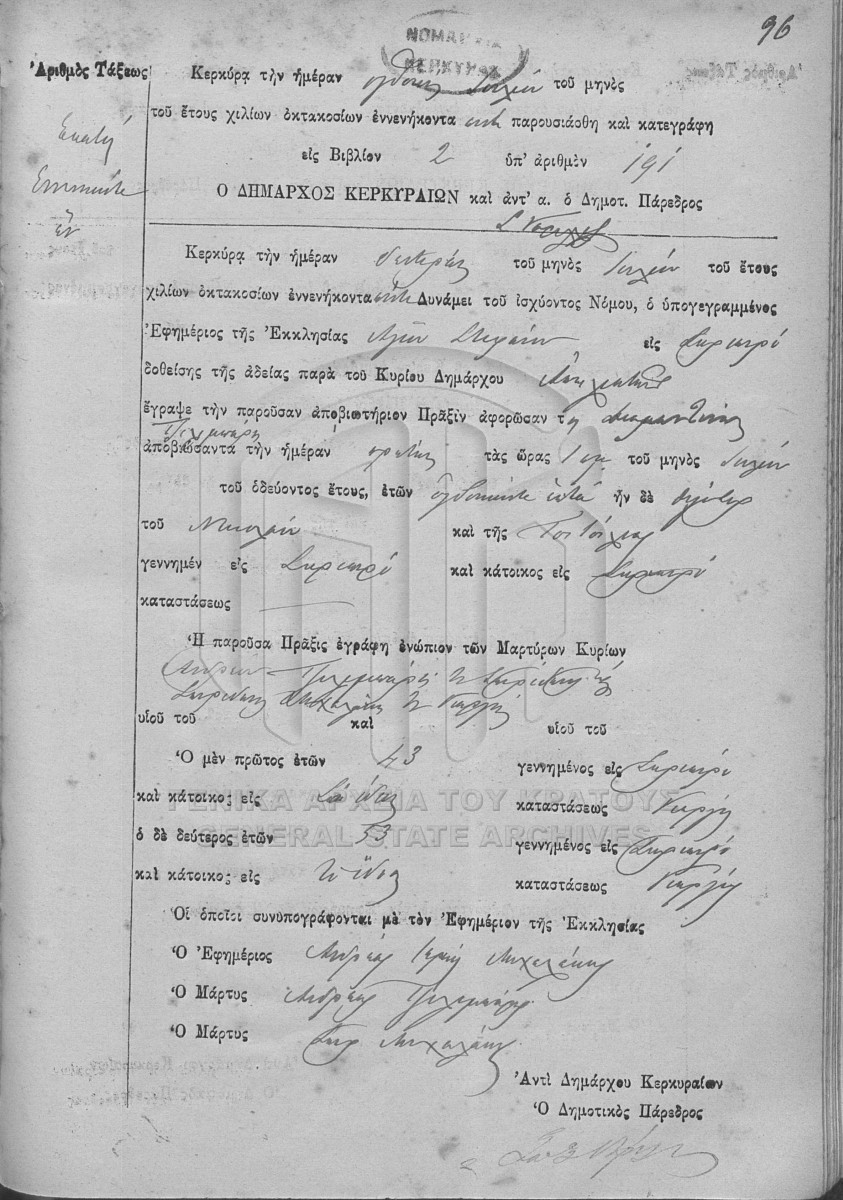 96
ΝΟΜΑΡΧΙΑ
ΚΕΡΚΥΡΑΣ
Ἀριθμὸς Τάξεως
Ἑκατὸ
Ἐννενῆντα
ἕν
Κερκύρᾳ τὴν ἡμέραν ὀγδόην Ἰουλίου τοῦ μηνὸς
τοῦ ἔτους χιλίων ὀκτακοσίων ἐννενήκοντα παρουσιάσθη καὶ κατεγράφη
εἰς Βιβλίον 2 ὑπ' ἀριθμὸν 191
Ο ΔΗΜΑΡΧΟΣ ΚΕΡΚΥΡΑΙΩΝ καὶ ἀντ' α. ὁ Δημοτ. Πάρεδρος
Κερκύρᾳ τὴν ἡμέραν δευτέραν τοῦ μηνὸς Ἰουλίου τοῦ ἔτους
χιλίων ὀκτακοσίων ἐννενήκοντα Δυνάμει τοῦ ἰσχύοντος Νόμου, ὁ ὑπογεγραμμένος
Ἐφημέριος τῆς Ἐκκλησίας Ἁγίου Στεφάνου εἰς Σκριπερό
δοθείσης τῆς ἀδείας παρὰ τοῦ Κυρίου Δημάρχου
ἔγραψε τὴν παροῦσαν ἀποβιωτήριον Πρᾶξιν ἀφορῶσαν τ
ἀποβιώσαντα τὴν ἡμέραν πρώτην τὰς ὥρας 1 τοῦ μηνὸς Ἰουλίου
τοῦ ὁδεύοντος ἔτους, ἐτῶν ὀγδοῆντα ἑπτά ἦν δὲ θυγάτηρ
τοῦ Νικολάου καὶ τῆς
γεννημέν εἰς Σκριπερό καὶ κάτοικος εἰς Σκριπερό
καταστάσεως
Ἡ παροῦσα Πρᾶξις ἐγράφη ἐνώπιον τῶν Μαρτύρων Κυρίων
Ἀνδρέου Σπυρίδωνος
Σπυρίδων Μιχαλάκης Γεωργίου
υἱοῦ τοῦ καὶ υἱοῦ τοῦ
Ὁ μὲν πρῶτος ἐτῶν 43 γεννημένος εἰς Σκριπερό
καὶ κάτοικος εἰς καταστάσεως Γεωργός
ὁ δὲ δεύτερος ἐτῶν 53 γεννημένος εἰς Σκριπερό
καὶ κάτοικος εἰς τὸ ἴδιο καταστάσεως Γεωργός
Οἱ ὁποῖοι συνυπογράφονται μὲ τὸν Ἐφημέριον τῆς Ἐκκλησίας
Ὁ Ἐφημέριος Ἀνδρέας Ἱερεὺς Μιχαλάκης
Ὁ Μάρτυς Ἀνδρέας
Ὁ Μάρτυς Σπυρ. Μιχαλάκης
Ἀντὶ Δημάρχου Κερκυραίων
Ὁ Δημοτικὸς Πάρεδρος
ΓΕΝΙΚΑ ΑΡΧΕΙΑ ΤΟΥ ΚΡΑΤΟΥΣ
GENERAL STATE ARCHIVES